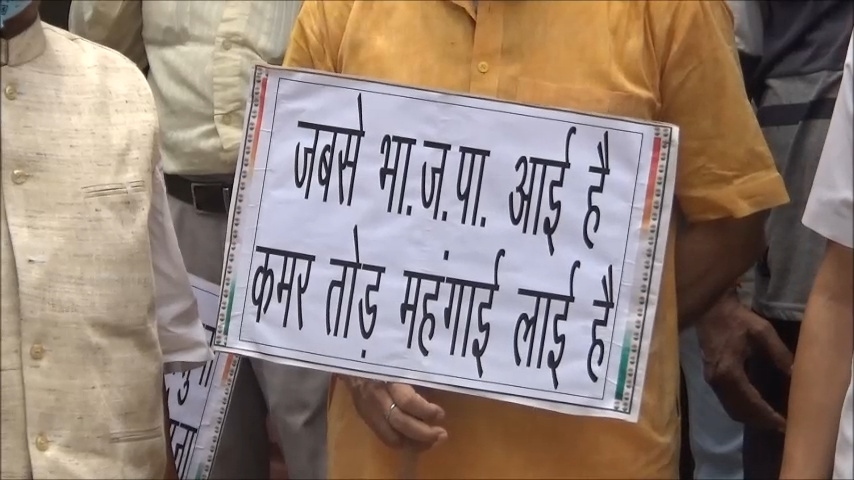 जबसे भा.ज.पा. आई है
कमर तोड़ महंगाई लाई है